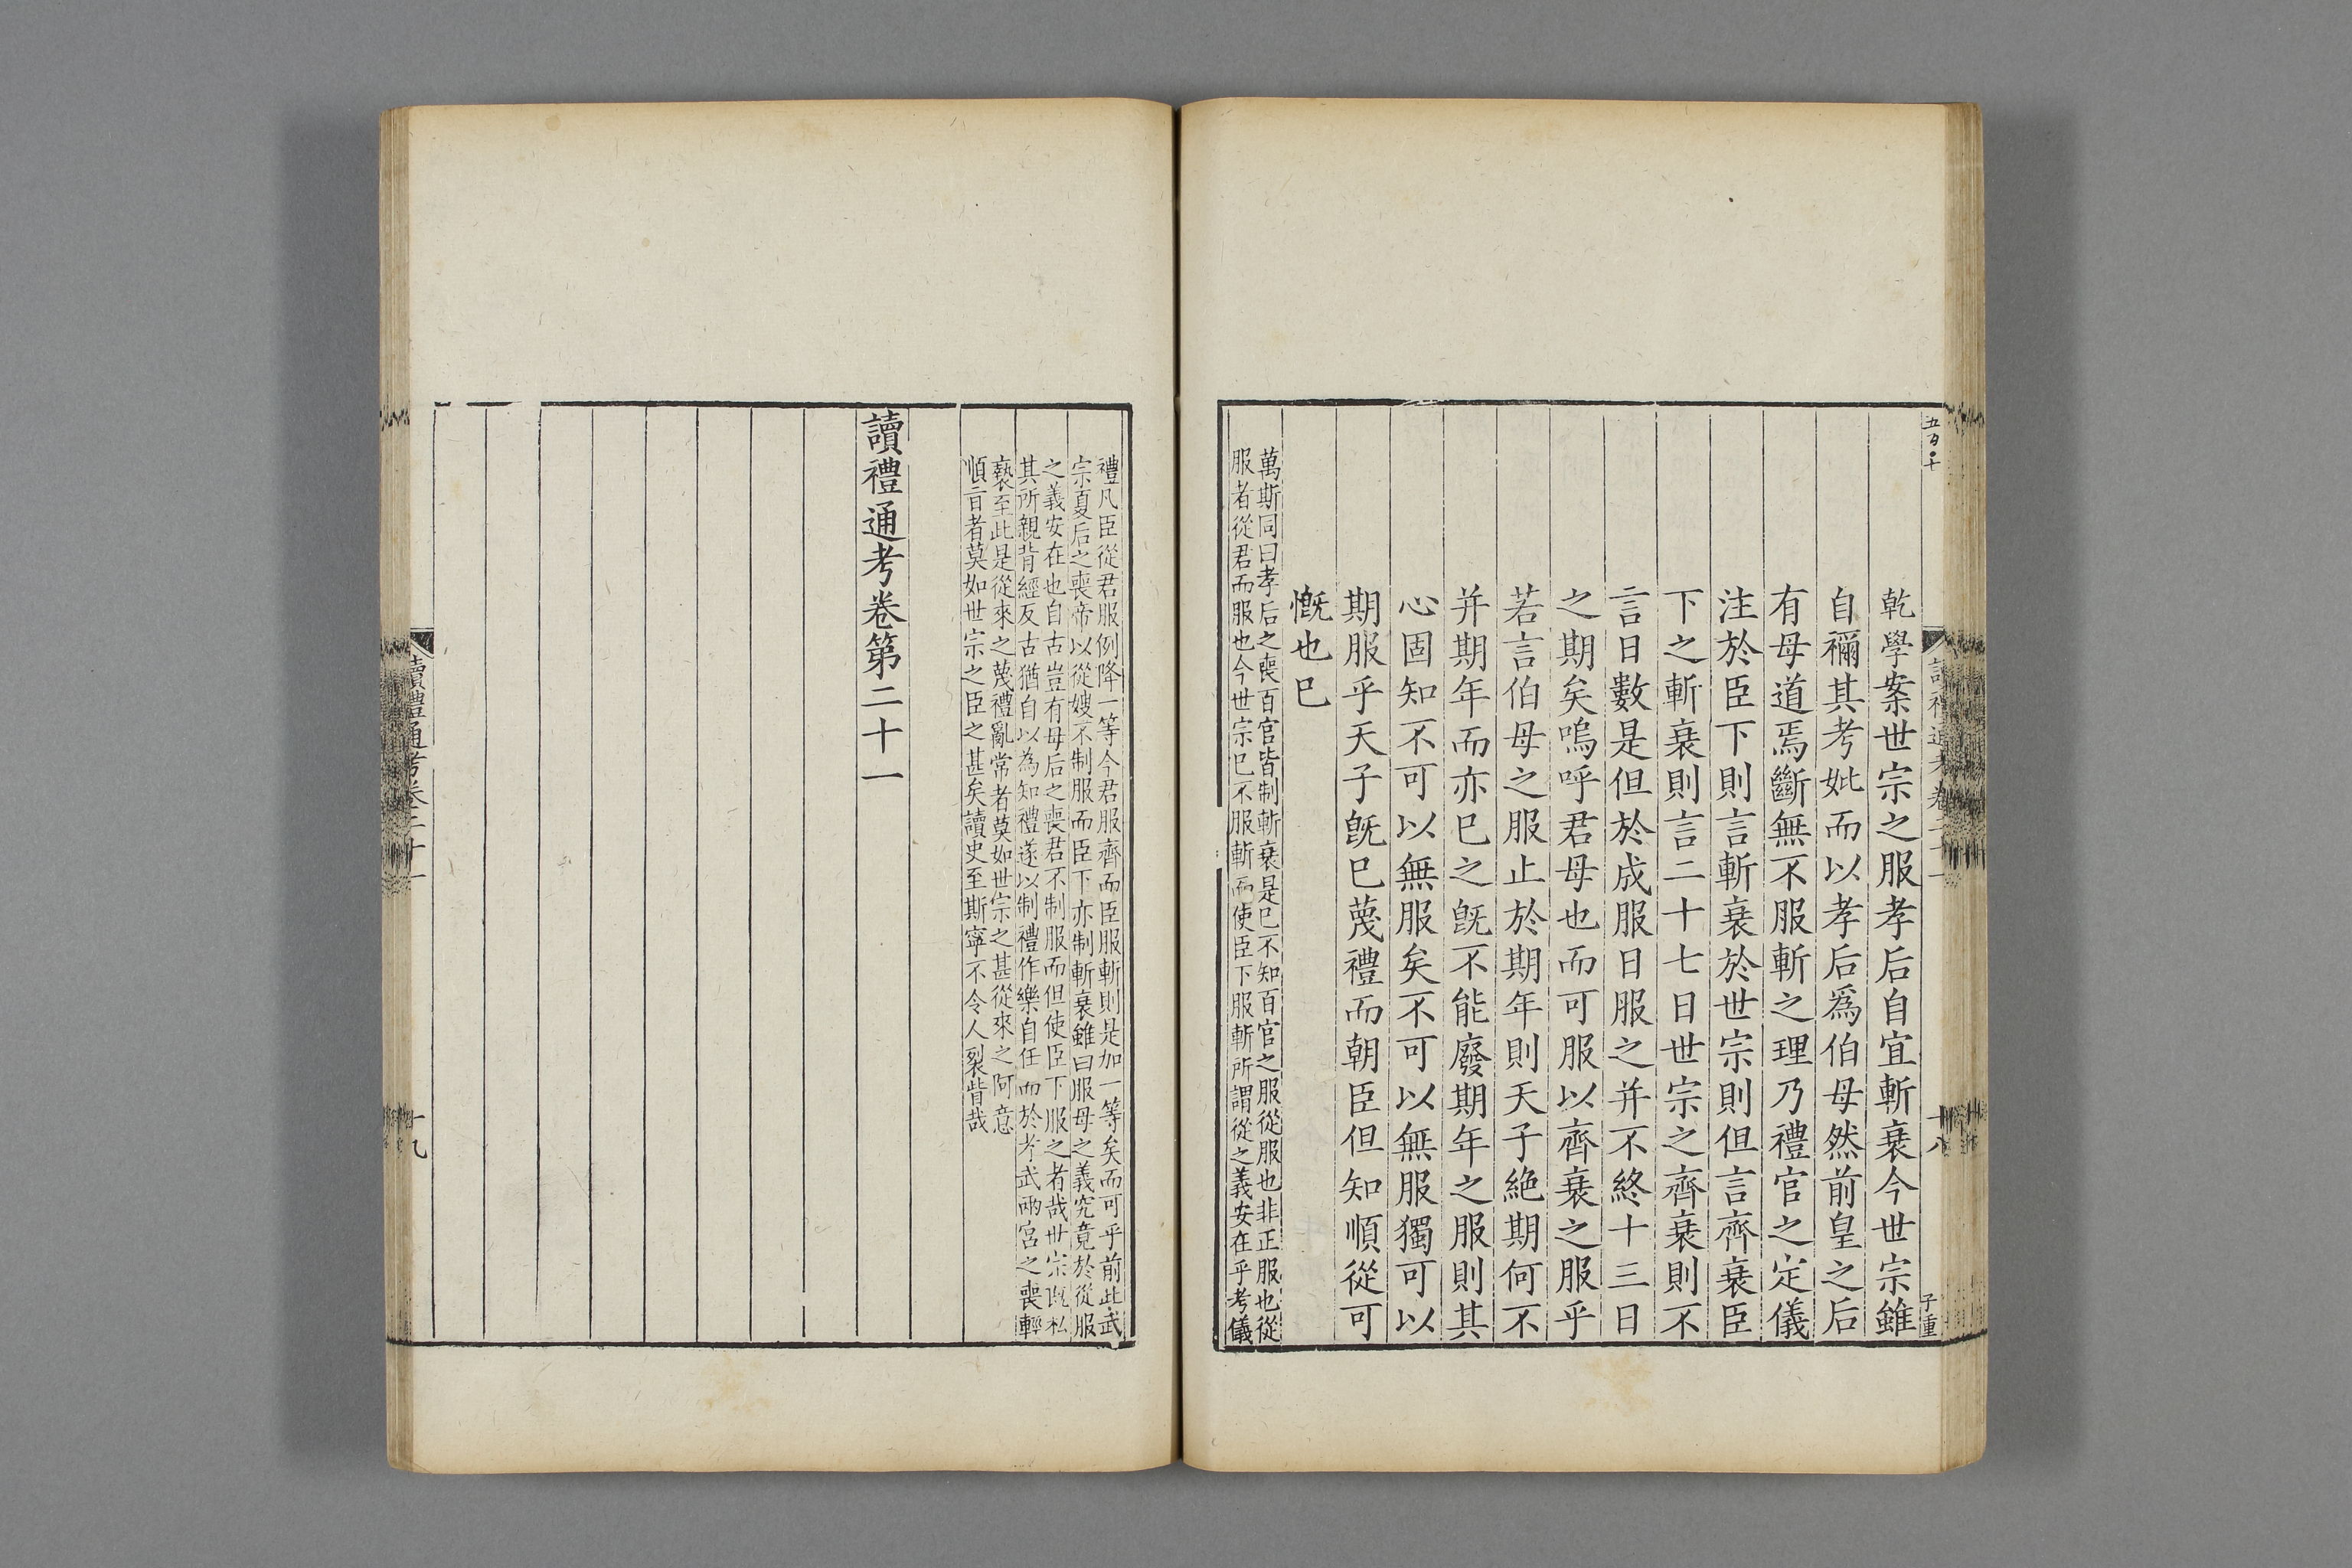 五百四十
乾學案世宗之服孝后自宜斬衰今世宗雖
自禰其考妣而以孝后爲伯母然前皇之后
有母道焉斷無不服斬之理乃禮官之定儀
注於臣下則言斬衰於世宗則但言齊衰臣
下之斬衰則言二十七日世宗之齊衰則不
言日數是但於成服日服之并不終十三日
之期矣嗚呼君母也而可服以齊衰之服乎
若言伯母之服止於期年則天子絶期何不
并期年而亦已之旣不能廢期年之服則其
心固知不可以無服矣不可以無服獨可以
期服乎天子旣已蔑禮而朝臣但知順從可
慨也已
萬斯同曰孝后之喪百官皆制斬衰是已不知百官之服從服也非正服也從
服者從君而服也今世宗已不服斬而使臣下服斬所謂從之義安在乎考儀
讀禮通考卷二十一
十八
子重
禮凡臣從君服例降一等今君服齊而臣服斬則是加一等矣而可乎前此武
宗夏后之喪帝以從嫂不制服而臣下亦制斬衰雖曰服母之義究竟於從服
之義安在也自古豈有母后之喪君不制服而但使臣下服之者哉世宗旣私
其所親背經反古猶自以為知禮遂以制禮作樂自任而於孝武兩宮之喪輕
褻至此是從來之蔑禮亂常者莫如世宗之甚從來之阿意
順旨者莫如世宗之臣之甚矣讀史至斯寧不令人裂眥哉
讀禮通考卷第二十一
讀禮通考卷二十一
十九